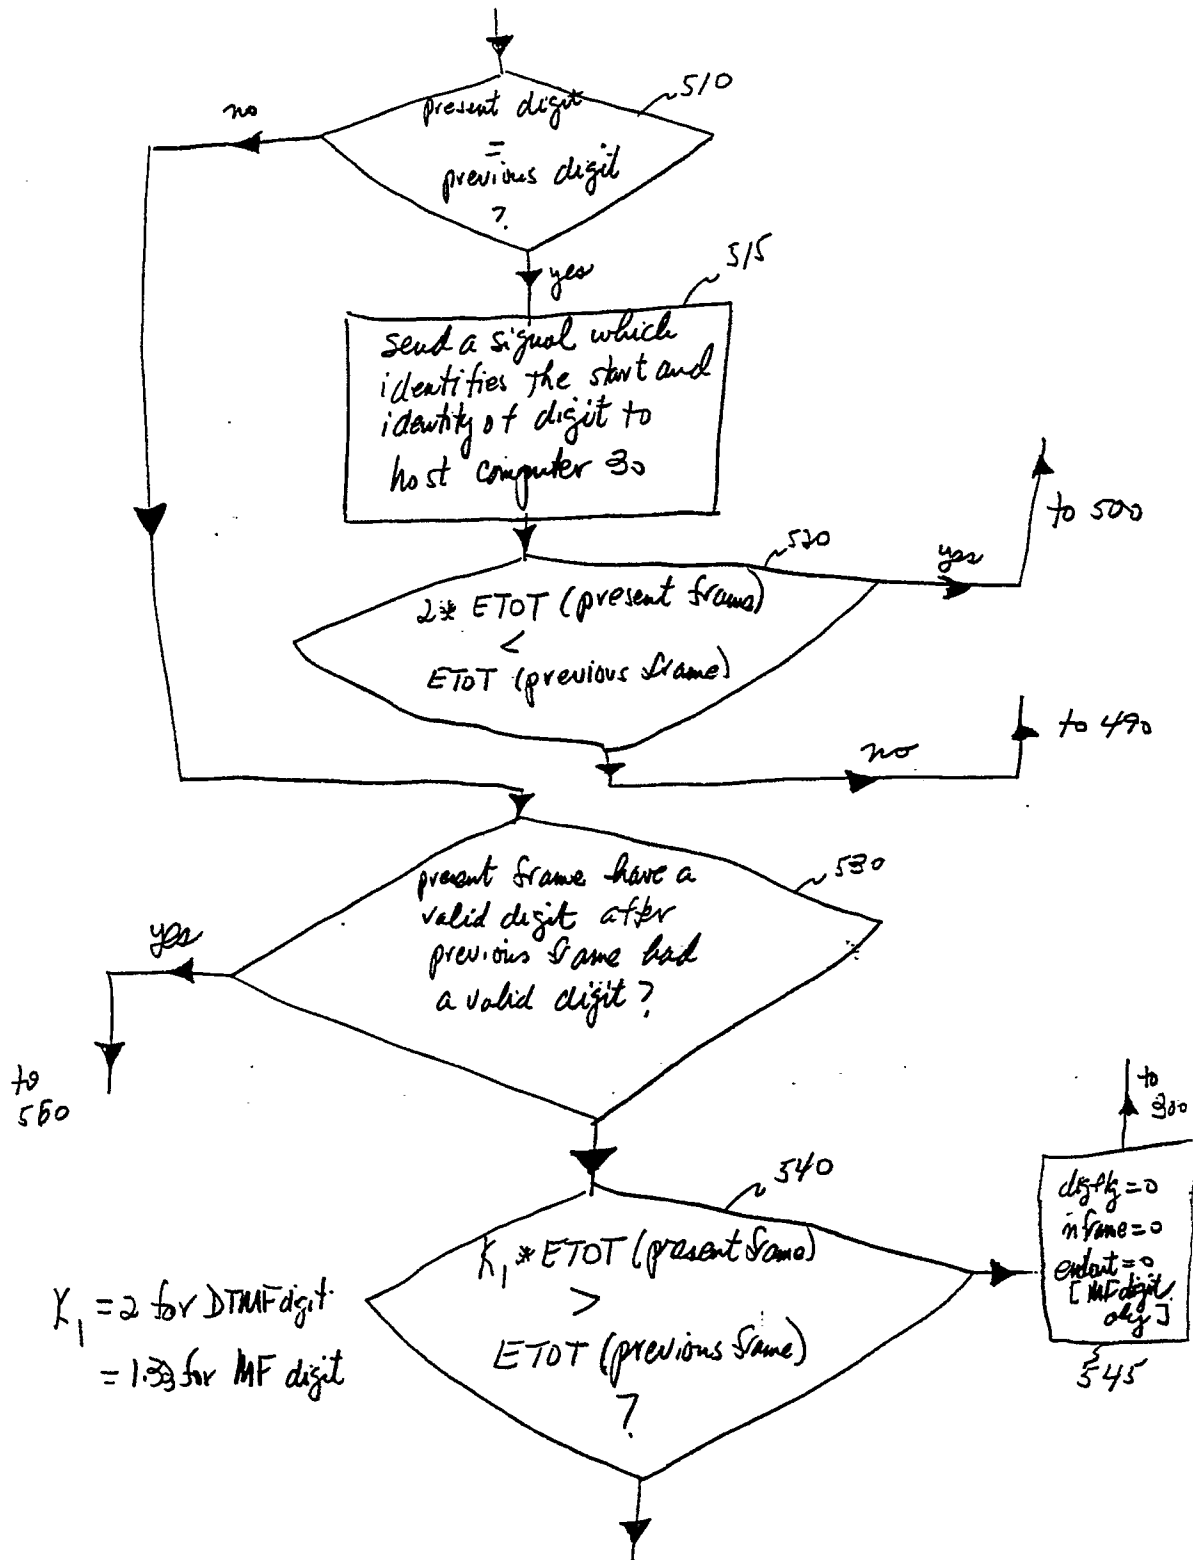 510
no
present digit
=
previous digit
?
yes
515
send a signal which
identifies the start and
identity of digit to
host computer 30
520
yes
to 500
2* ETOT (present frame)
<
ETOT (previous frame)
no
to 490
530
present frame have a
valid digit after
previous frame had
a valid digit?
yes
to
560
540
K1 * ETOT (present frame)
>
ETOT (previous frame)
?
K1 = 2 for DTMF digit
= 1.33 for MF digit
to
300
digflg=0
nframe=0
endout=0
[MF digit
only]
545